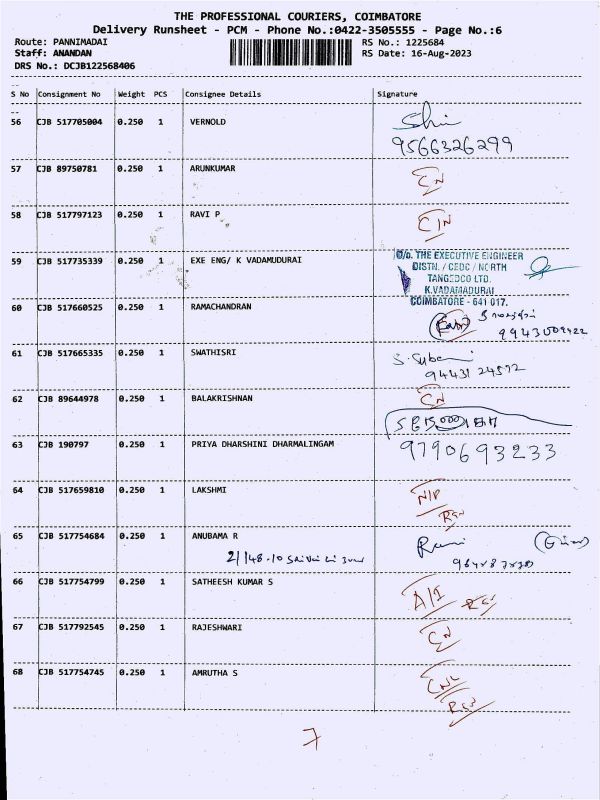 THE PROFESSIONAL COURIERS, COIMBATORE
Delivery Runsheet - PCM - Phone No.:0422-3505555 - Page No.:6
Route: PANNIMADAI
RS No.: 1225684
Staff: ANANDAN
RS Date: 16-Aug-2023
DRS No.: DCJB122568406
S No Consignment No Weight PCS Consignee Details Signature
56 CJB 517705004 0.250 1 VERNOLD
9566326299
57 CJB 89750781 0.250 1 ARUNKUMAR CN
58 CJB 517797123 0.250 1 RAVI P CIN
59 CJB 517735339 0.250 1 EXE ENG/ K VADAMUDURAI
O/o. THE EXECUTIVE ENGINEER
DISTN. / CEDC / NORTH
TANGEDCO LTD.
K.VADAMADURAI
COIMBATORE - 641 017.
60 CJB 517660525 0.250 1 RAMACHANDRAN
61 CJB 517665335 0.250 1 SWATHISRI
62 CJB 89644978 0.250 1 BALAKRISHNAN CN
63 CJB 190797 0.250 1 PRIYA DHARSHINI DHARMALINGAM 9790693233
64 CJB 517659810 0.250 1 LAKSHMI
65 CJB 517754684 0.250 1 ANUBAMA R
66 CJB 517754799 0.250 1 SATHEESH KUMAR S
67 CJB 517792545 0.250 1 RAJESHWARI CN
68 CJB 517754745 0.250 1 AMRUTHA S
7